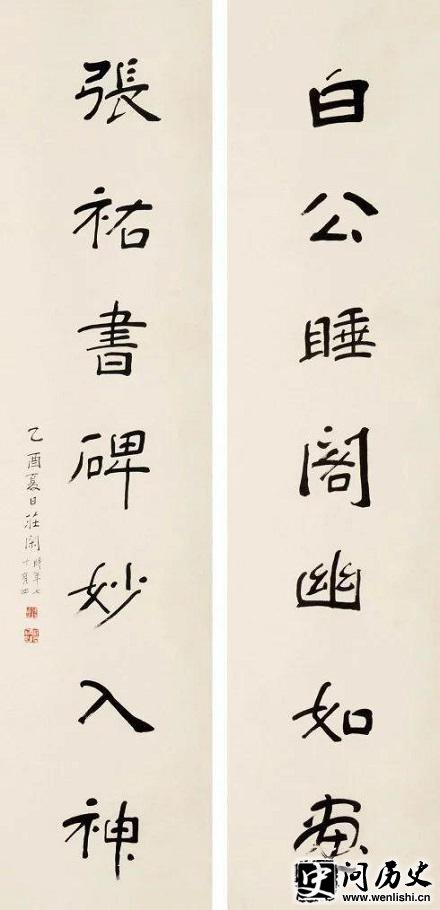 白公睡阁幽如画
張祜書碑妙入神
乙酉夏日莊閑時年七十有四
史问历史
www.wenlishi.cn